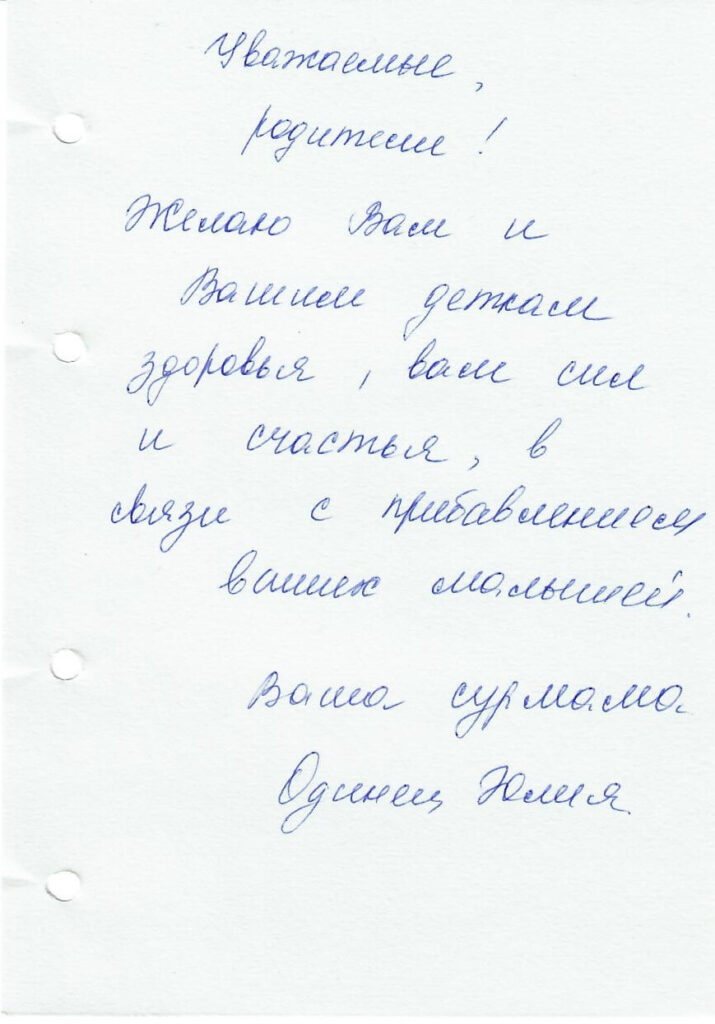 Уважаемые,
родители!
Желаю Вам и
Вашим деткам
здоровья, вам сил
и счастья, в
связи с прибавлением
ваших малышей.
Ваша сурмама.
Одинец Юлия